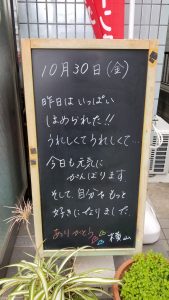 10月30日(金)
昨日はいっぱい
ほめられた!!
うれしくてうれしくて…
今日も元気に
がんばります
そして、自分をもっと
好きになりまして。
ありがとう 横山